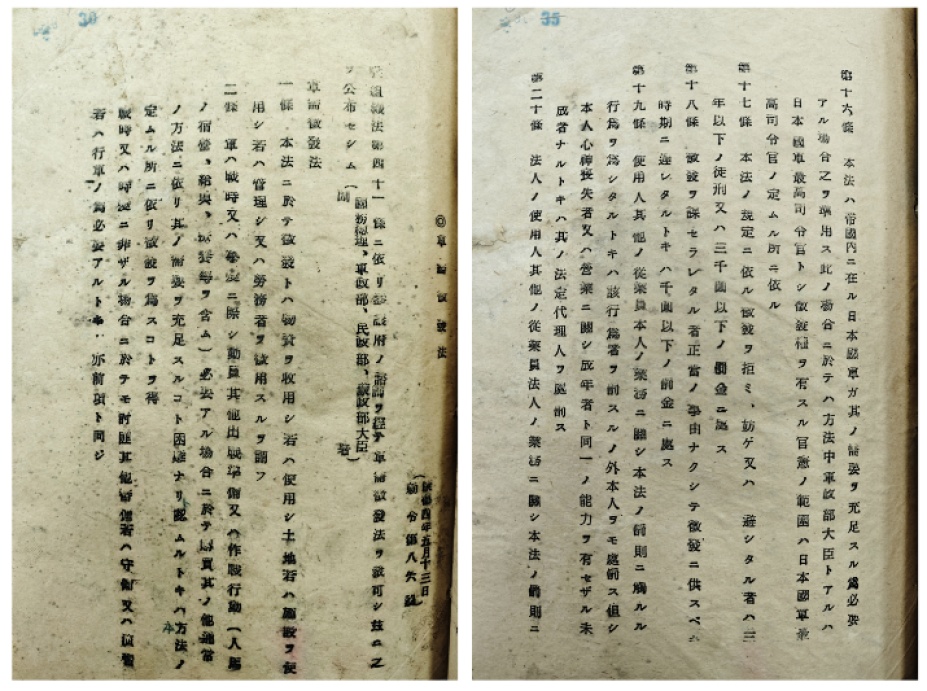 30
◎軍需徵發法
(康德四年五月十三日
勅令第八六號)
組織法第四十一條ニ依リ參議府ノ諮詢ヲ經テ軍需徵發法ヲ裁可シ茲ニ之
ヲ公布セシム
(國務總理、軍政部、民政部、蒙政部大臣
副署)
軍需徵發法
一條 本法ニ於テ徵發トハ物資ヲ收用シ若ハ使用シ土地若ハ施設ヲ使
用シ若ハ管理シ又ハ勞務者ヲ使用スルヲ謂フ
二條 軍ハ戰時又ハ事變ニ際シ動員其他出戰準備又ハ作戰行動(人馬
ノ宿營、給與、ヲ含ム)必要アル場合ニ於テ購買其ノ他通常
ノ方法ニ依リ其ノ需要ヲ充足スルコト困難ナリト認ムルトキハ方法ノ
定ムル所ニ依リ徵發ヲ爲スコトヲ得
戰時又ハ時變ニ非ザル場合ニ於テモ討匪其他警備若ハ守備又ハ演習
若ハ行軍ノ爲必要アルトキ亦前項ト同ジ
35
第十六條 本法ハ帝國內ニ在ル日本國軍ガ其ノ需要ヲ充足スル爲必要
アル場合之ヲ準用ス此ノ場合ニ於テハ方法中軍政部大臣トアルハ
日本國軍最高司令官トシ徵發權ヲ有スル官憲ノ範圍ハ日本國軍最
高司令官ノ定ムル所ニ依ル
第十七條 本法ノ規定ニ依ル徵發ヲ拒ミ、妨ゲ又ハ 避シタル者ハ三
年以下ノ徒刑又ハ三千圓以下ノ罰金ニ處ス
第十八條 徵發ヲ課セラレタル者正當ノ事由ナクシテ徵發ニ供スベキ
時期ニ遲レタルトキハ千圓以下ノ罰金ニ處ス
第十九條 使用人其他ノ從業員本人ノ業務ニ關シ本法ノ罰則ニ觸ルル
行爲ヲ爲シタルトキハ該行爲者ヲ罰スルノ外本人ヲモ處罰ス但シ
本人心神喪失者又ハ營業ニ關シ成年者ト同一ノ能力ヲ有セザル未
成者ナルトキハ其ノ法定代理人ヲ處罰ス
第二十條 法人ノ使用人其他ノ從業員法人ノ業務ニ關シ本法ノ罰則ニ